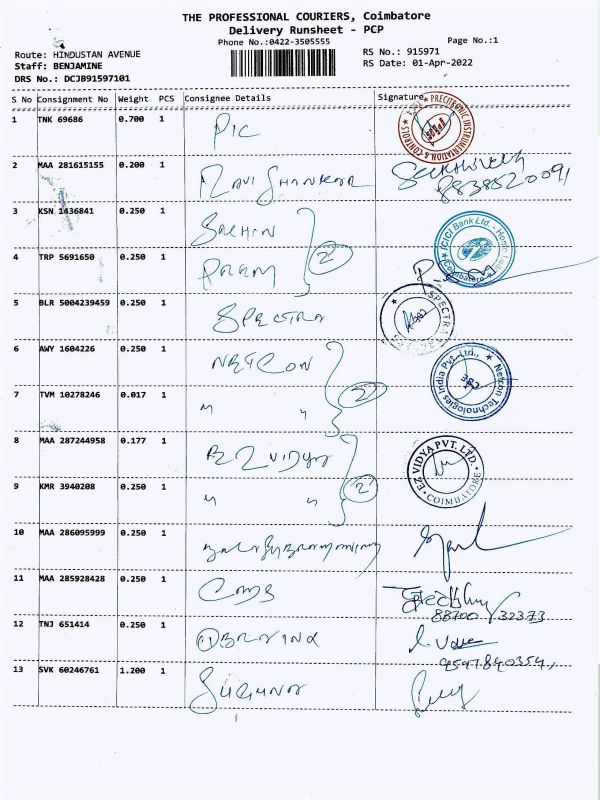 THE PROFESSIONAL COURIERS, Coimbatore
Delivery Runsheet - PCP
Phone No.:0422-3505555 Page No.:1
Route: HINDUSTAN AVENUE RS No.: 915971
Staff: BENJAMINE RS Date: 01-Apr-2022
DRS No.: DCJB91597101
S No Consignment No Weight PCS Consignee Details Signature
1 TNK 69686 0.700 1 PIC
PRECITRONIC INSTRUMENTATION & CONTROLS
2 MAA 281615155 0.200 1 RAVI SHANKAR
8838520091
3 KSN 1436841 0.250 1 SACHIN
ICICI Bank Ltd
4 TRP 5691650 0.250 1 2
5 BLR 5004239459 0.250 1 SPECTRA
SPECTRA
6 AWY 1604226 0.250 1 NETCON
Netcon Technologies India Pvt. Ltd.,
7 TVM 10278246 0.017 1 " " 2
8 MAA 287244958 0.177 1 EZ VIDYA
EZ VIDYA PVT. LTD. COIMBATORE
9 KMR 3940208 0.250 1 " " 2
10 MAA 286095999 0.250 1
11 MAA 285928428 0.250 1
88700 / 32373
12 TNJ 651414 0.250 1
9597840354
13 SVK 60246761 1.200 1